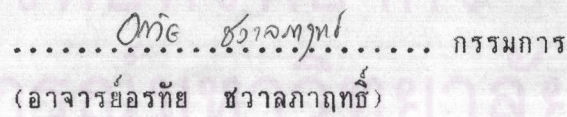 อรทัย ชวาลภาฤทธิ์ กรรมการ
(อาจารย์อรทัย ชวาลภาฤทธิ์)